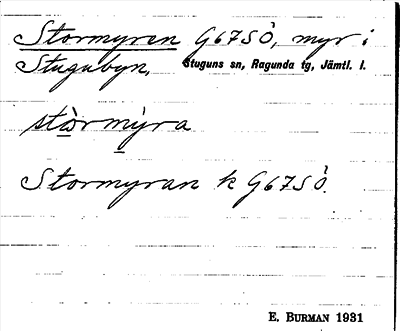 Stormyren G67SÖ, myr i
Stugubyn, Stuguns sn, Ragunda tg, Jämtl. l.
stòrmýra
Stormyran k G67SÖ.
E. BURMAN 1931